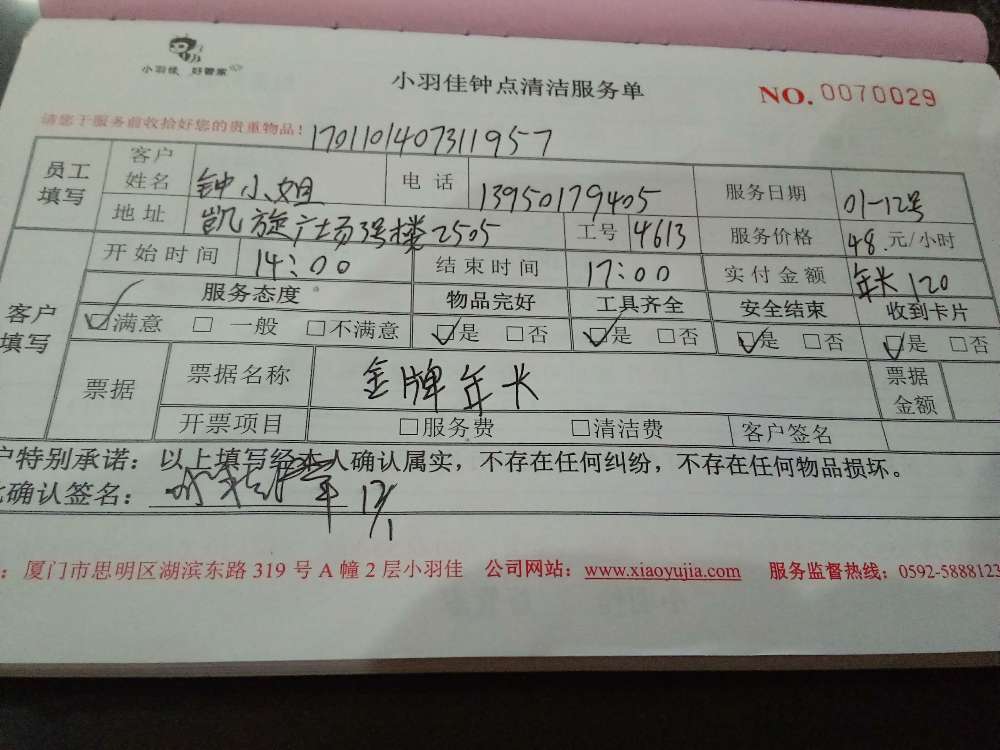 小羽佳 好管家
小羽佳钟点清洁服务单
NO. 0070029
请您于服务前收拾好您的贵重物品！
1701101407311957
员工填写 客户姓名 钟小姐 电话 13950179405 服务日期 01-12号
地址 凯旋广场3号楼2505 工号 4613 服务价格 48.元/小时
客户填写 开始时间 14:00 结束时间 17:00 实付金额 年卡 120
服务态度 物品完好 工具齐全 安全结束 收到卡片
☑满意 □一般 □不满意 ☑是 □否 ☑是 □否 ☑是 □否 ☑是 □否
票据 票据名称 金牌年卡 票据金额
开票项目 □服务费 □清洁费 客户签名
户特别承诺：以上填写经本人确认属实，不存在任何纠纷，不存在任何物品损坏。
确认签名： 12/1
：厦门市思明区湖滨东路 319 号 A 幢 2 层小羽佳 公司网站：www.xiaoyujia.com 服务监督热线：0592-5888123